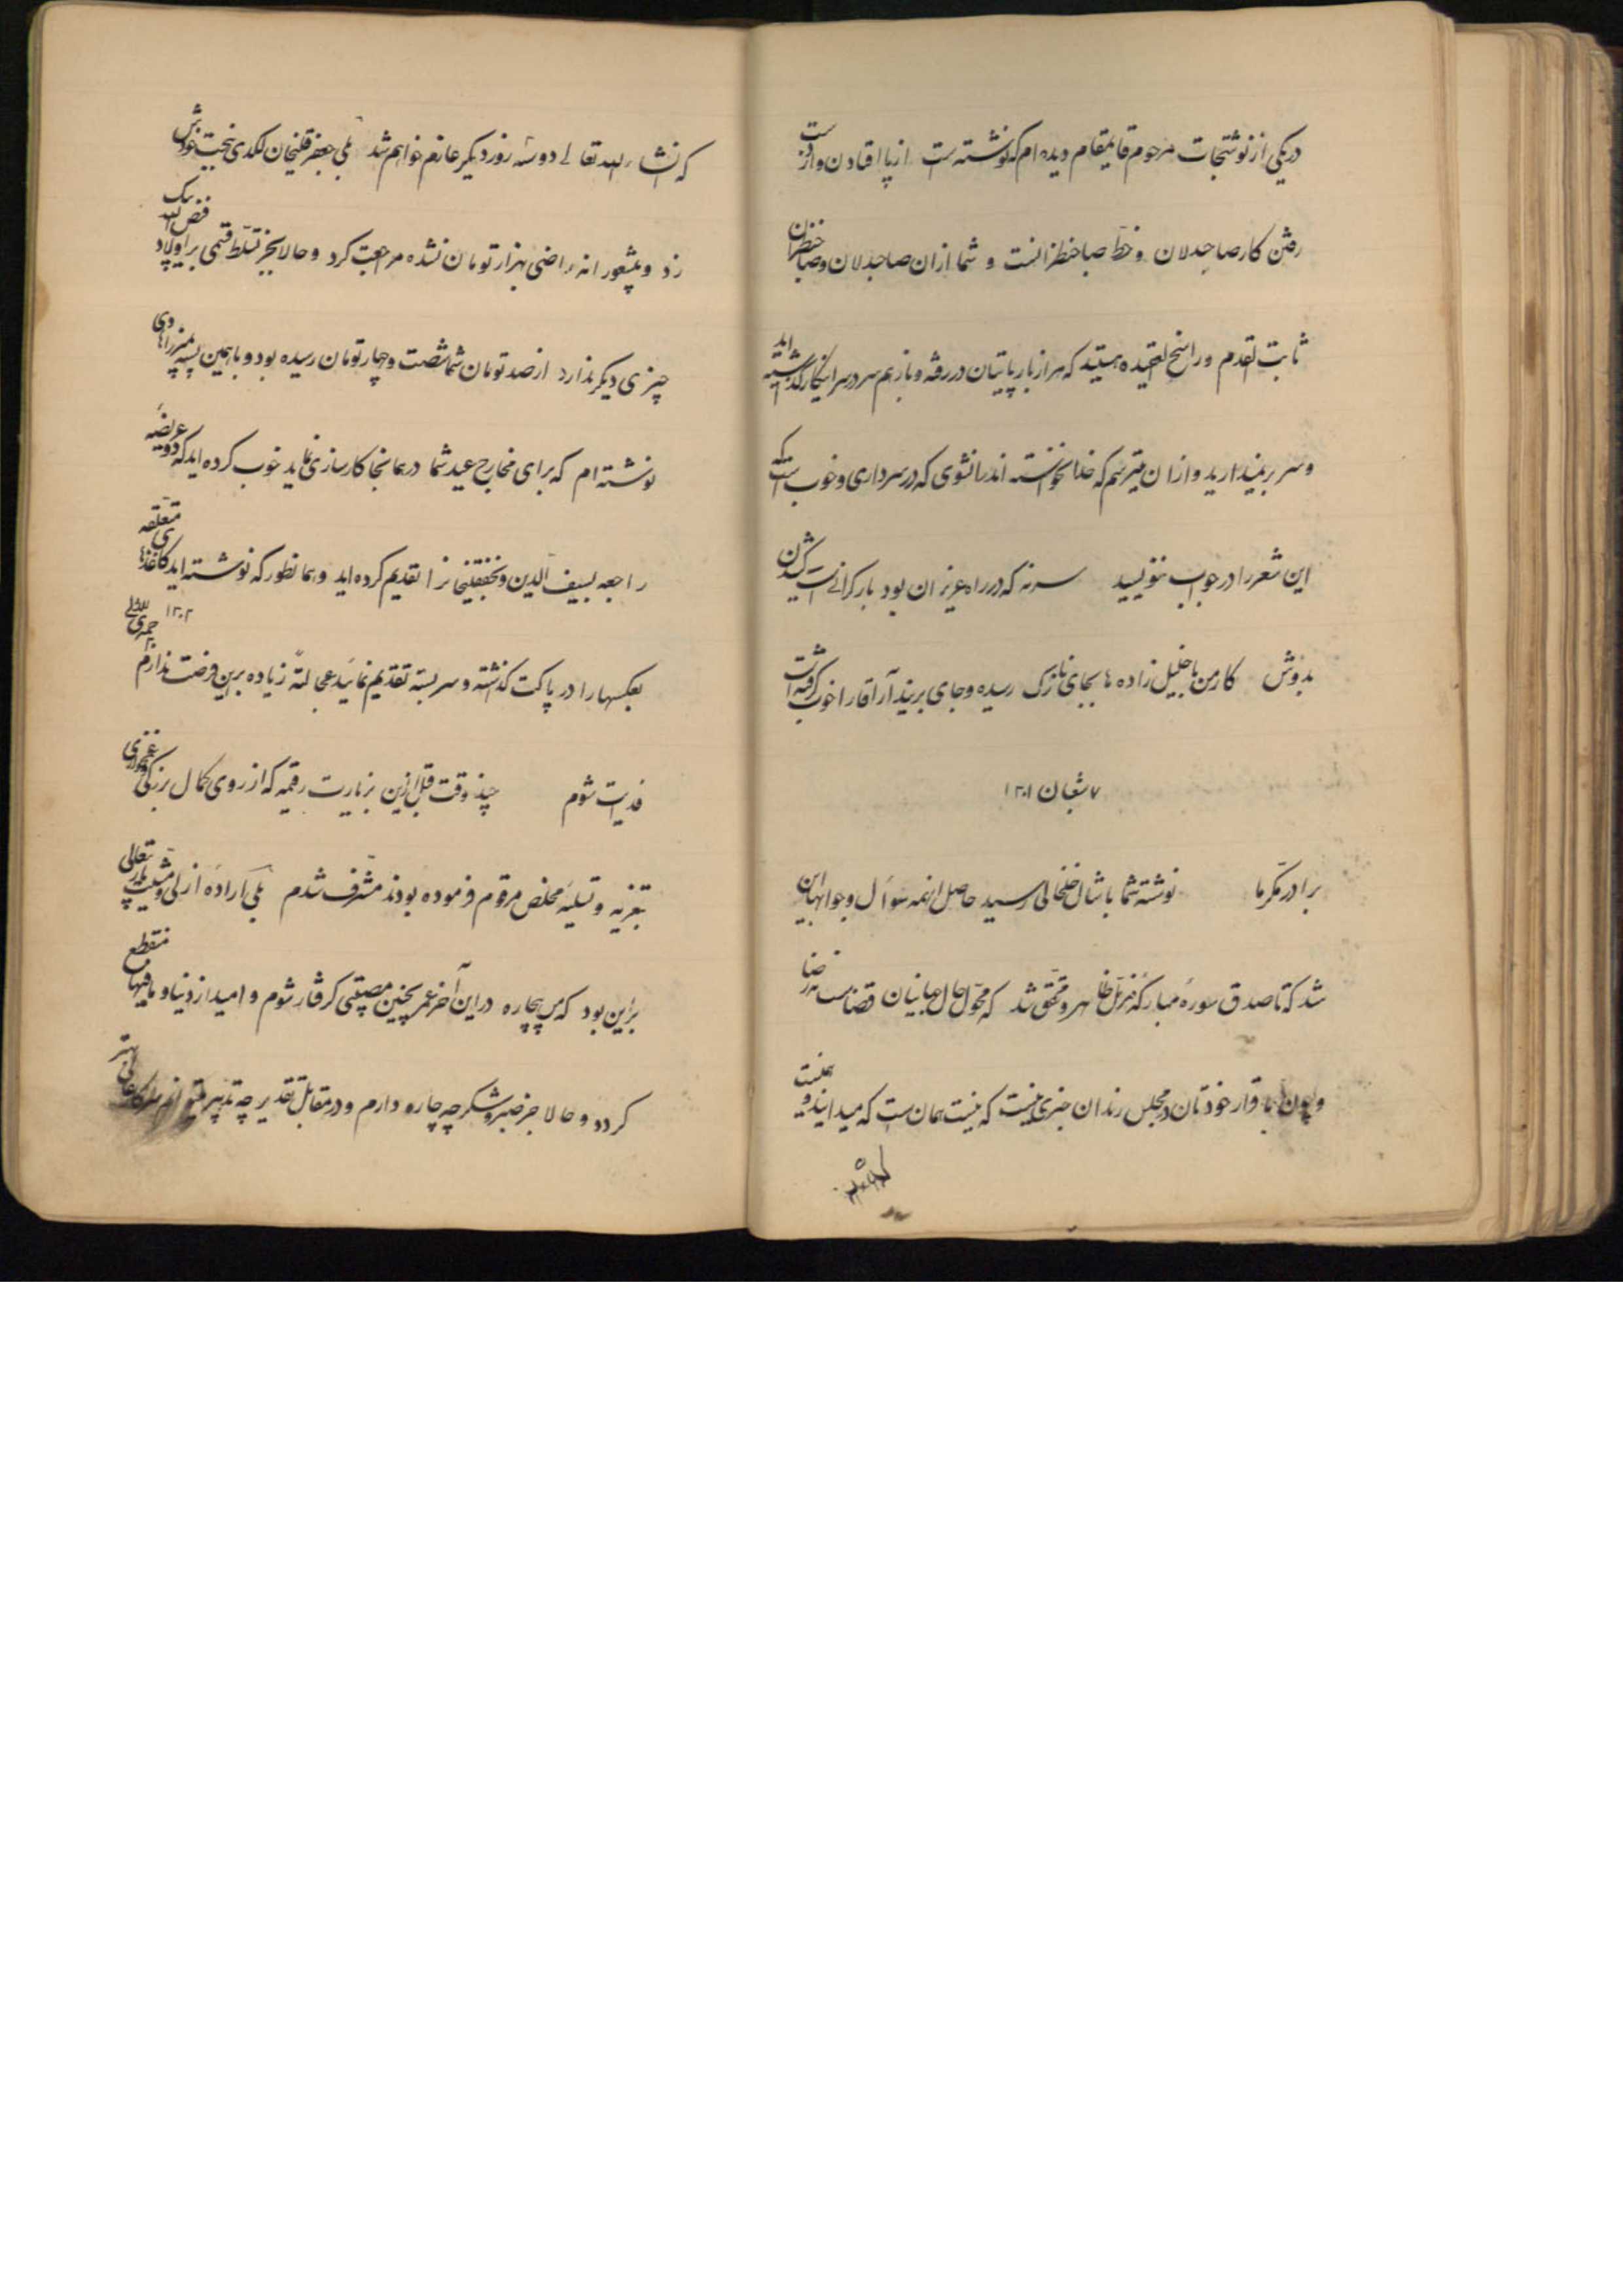 در یکی از نوشتجات مرحوم قایمقام دیده ام که نوشته است از پا افتادن و از دست
رفتن کار صاحبدلان و خط صاحبنظرانست و شما از ان صاحبدلان و صاحبنظران
ثابت القدم و راسخ العقیده هستید که هزار بار پایتان در رفته و باز هم سر در سر اینکار گذاشته اید
و سر بر نمیدارید و از ان میترسم که خدا نخواسته اندر سر انشوی که در سر داری و خوب است که
این شعر را در جواب بنویسید سر نه که در راه عزیزان بود بار گرانیست کشیدن
بدوش کار من با خلیل زاده ها بجای نازک رسیده و جای برید آراقا را خوب گرفته است
۷ شعبان ۱۳۰۱
برادر مکرما نوشته شما با شال خلخالی رسید حاصل اینهمه سوال و جوابها این
شد که تا صدق سوره مبارکه ظاهر و محقق شد که محول حال جهانیان قضاست
و چون باقرار خودتان در مجلس رندان خبری نیست که نیست همان ست که میدانید و
که انشاء الله تعالی دو سه روز دیگر عازم خواهم شد بلی جعفر قلیخان لگدی ببخت خودش
زد و بیشعورانه راضی بهزار تومان نشده مراجعت کرد و حالا بجز تسلط قسمی بر اولاد فضل الله بیک
چیزی دیگر ندارد از صد تومان شما شصت و چهار تومان رسیده بود و با همین پسته
نوشته ام که برای مخارج عید شما در همانجا کارسازی نماید خوب کرده اید که دو عریضه
راجعه بسیف الدین و نجفقلیخانرا تقدیم کرده اید و همانطور که نوشته اید کاغذهای متعلقه
بعکسها را در پاکت گذاشته و سر بسته تقدیم نمائید عجالتة زیاده بر این فرصت ندارم ۱۳۰۲
فدایت شوم چند وقت قبل ازین بزیارت رقیمه که از روی کمال بزرگی و غمخواری
بتعزیه و تسلیه مخلص مرقوم فرموده بودند مشرف شدم بلی اراده ازلی و مشیت باری تعالی
براین بود که من بیچاره در این آخر عمر بچنین مصیبتی گرفتار شوم و امید از دنیا و مافیها منقطع
گردد و حالا جز صبر و شکر چه چاره دارم و در مقابل تقدیر چه تدبیر